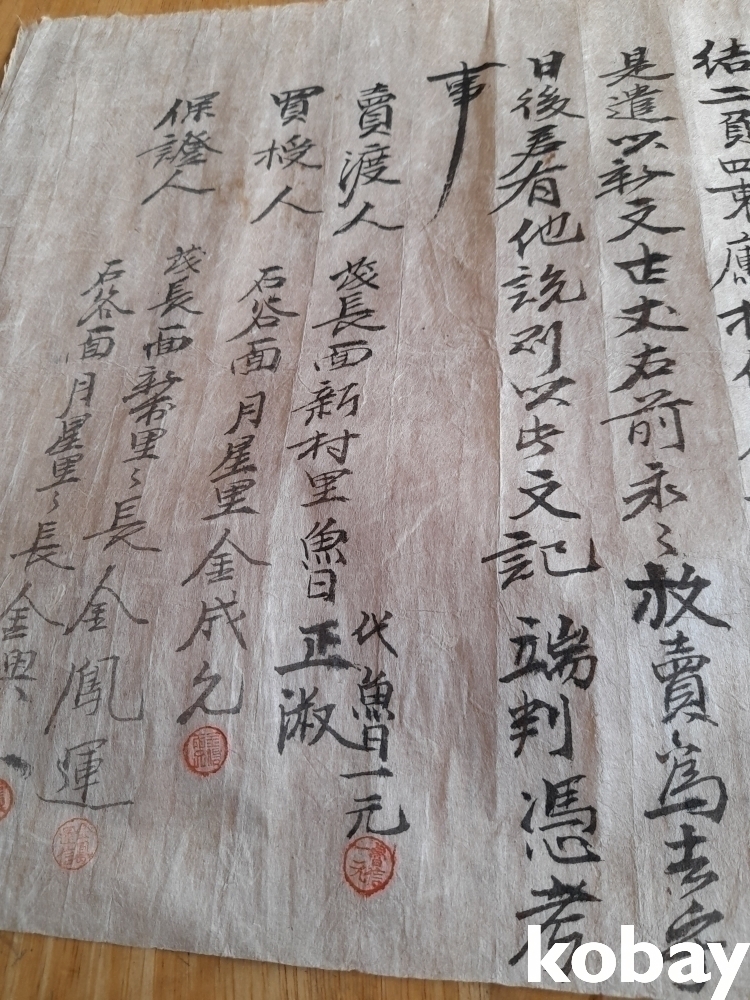 結二負四束
是遣以新文壹丈右前永〻放賣爲去乎
日後若有他說則以此文記 端判憑考
事
賣渡人 茂長面新村里魯正淑
代魯一元
買授人 石谷面月星里金成允
保證人 茂長面新村里〻長金鳳運
石谷面月星里〻長金興
kobay